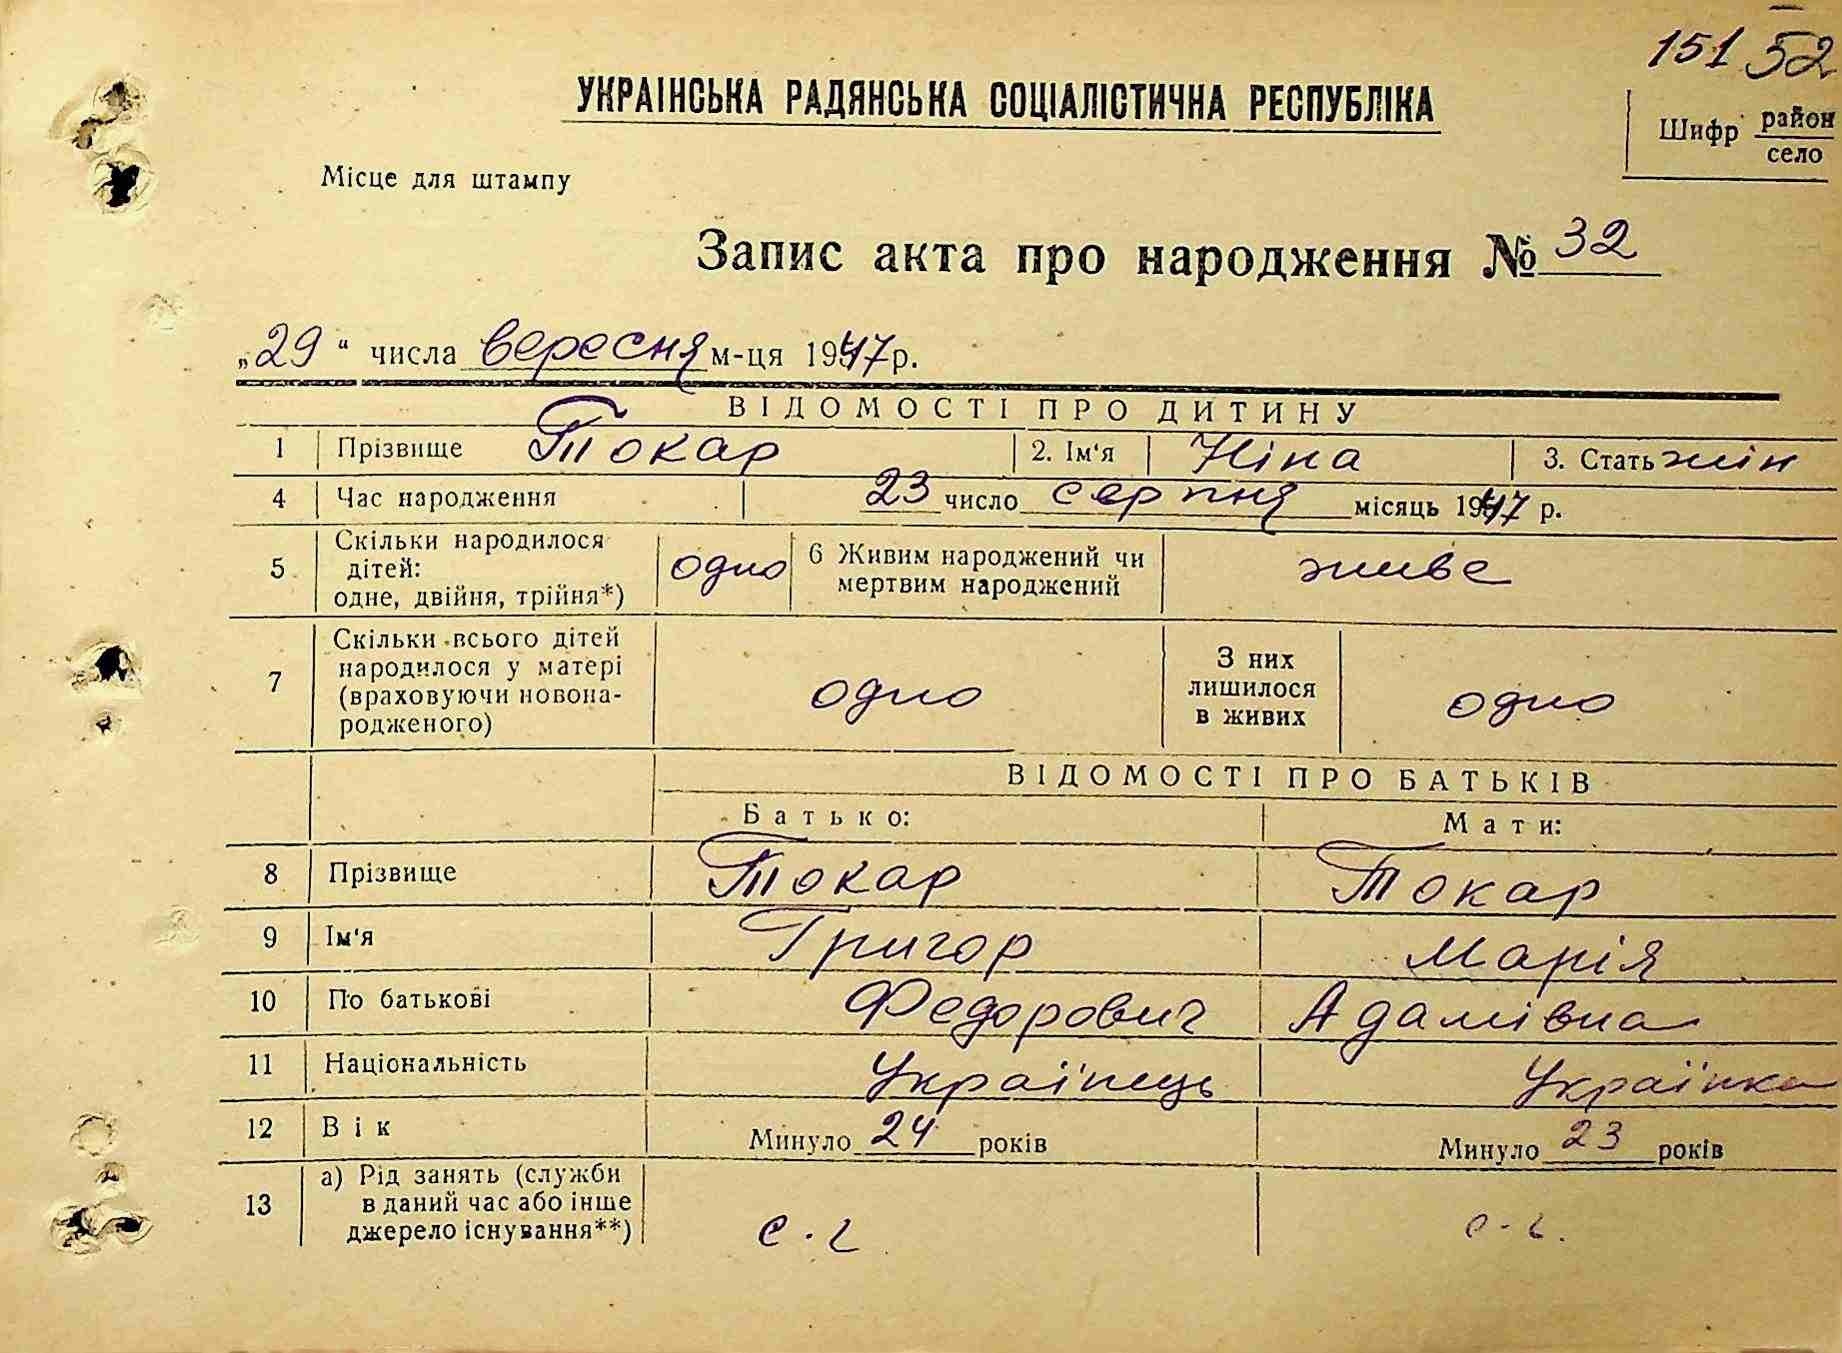 151 52
УКРАЇНСЬКА РАДЯНСЬКА СОЦІАЛІСТИЧНА РЕСПУБЛІКА
Шифр район
село
Місце для штампу
Запис акта про народження № 32
„29“ числа вересня м-ця 1947 р.
ВІДОМОСТІ ПРО ДИТИНУ
1 Прізвище Токар 2. Ім'я Ніна 3. Стать жін
4 Час народження 23 число серпня місяць 1947 р.
5 Скільки народилося дітей: одне, двійня, трійня*) одно 6 Живим народжений чи мертвим народжений живе
7 Скільки всього дітей народилося у матері (враховуючи новонародженого) одно З них лишилося в живих одно
ВІДОМОСТІ ПРО БАТЬКІВ
Батько: Мати:
8 Прізвище Токар Токар
9 Ім'я Григор Марія
10 По батькові Федорович Адамівна
11 Національність Українець Українка
12 Вік Минуло 24 років Минуло 23 років
13 а) Рід занять (служби в даний час або інше джерело існування**) с.г с-г.